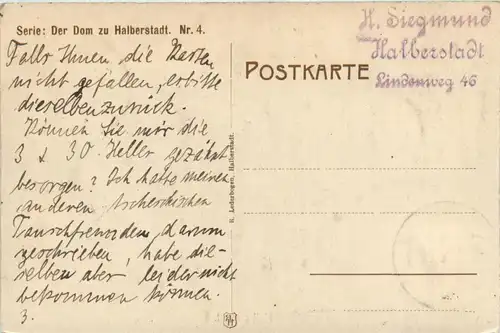 Serie: Der Dom zu Halberstadt. Nr. 4.
Falls Ihnen die Karten
nicht gefallen, erbitte
dieselben zurück.
Können Sie mir die
3 & 30 Heller gezähnt
besorgen? Ich hatte meinen
anderen tschechischen
Tauschfreunden, darum
geschrieben, habe die-
selben aber leider nicht
bekommen können.
3.
R. Lederbogen, Halberstadt.
H. Siegmund
Halberstadt
Lindenweg 46
POSTKARTE